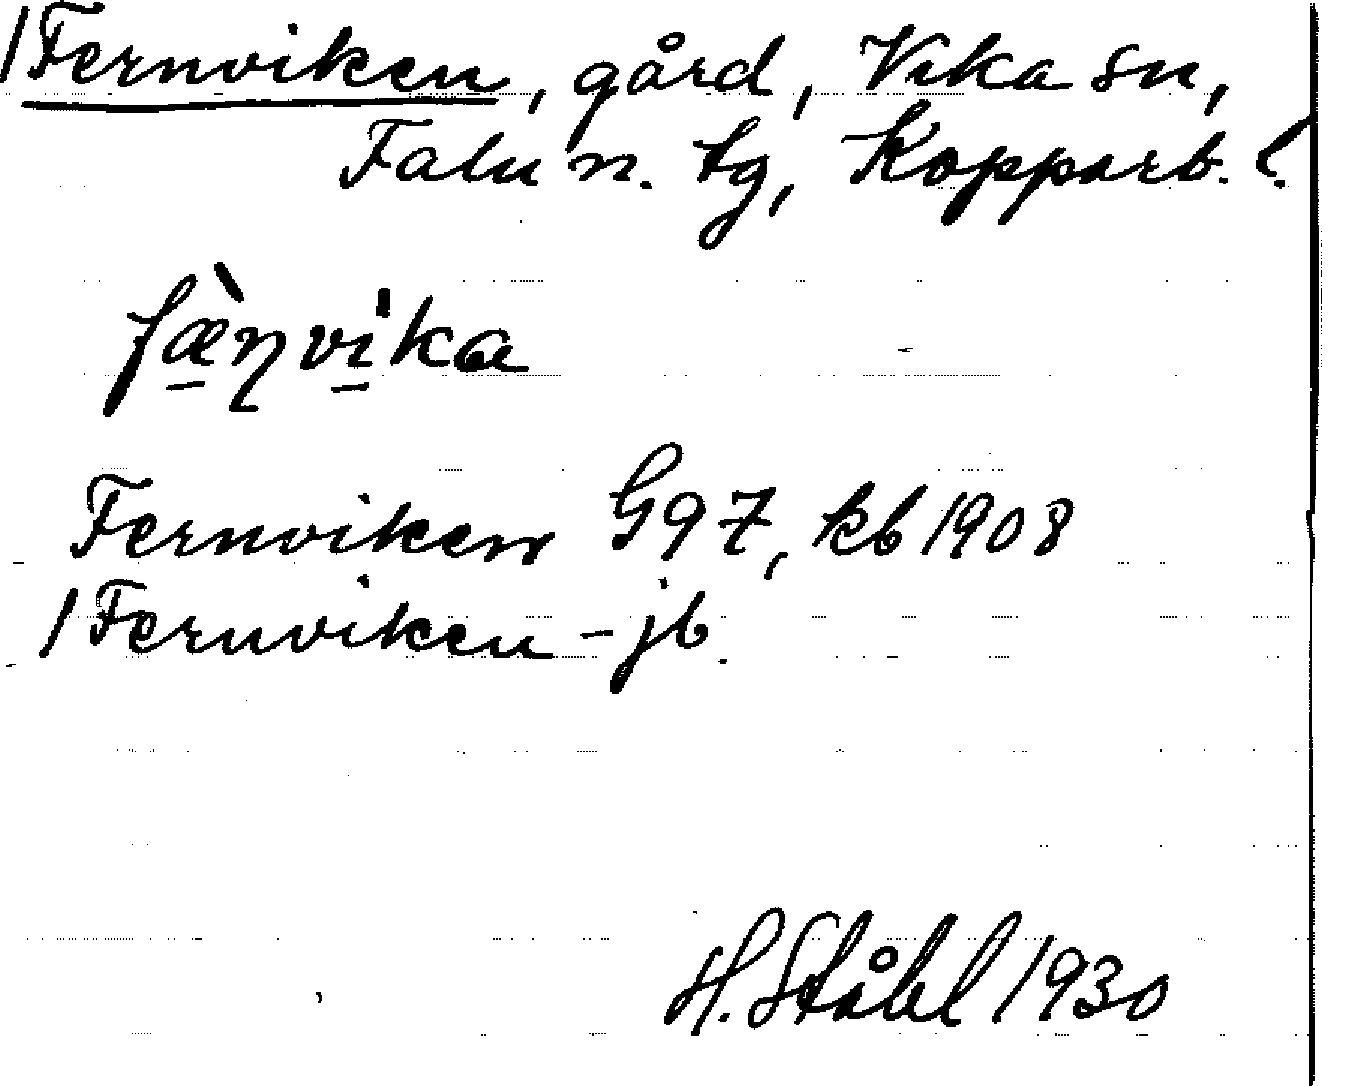 /Fernviken, gård, Vika sn,
Falu n. tg, Kopparb. l.
fæ̠̀ɳvi̠ka
Fernviken G97, kb 1908
/Fernviken - jb.
H. Ståhl 1930